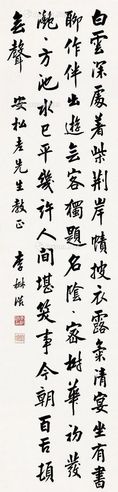 白雲深處着柴荊岸幘披衣露氣清宴坐有書
聊作伴出遊無客獨題名陰々密樹華初發
灔々方池水已平幾許人間堪笑事今朝百舌頓
無聲 安松老先生教正 李